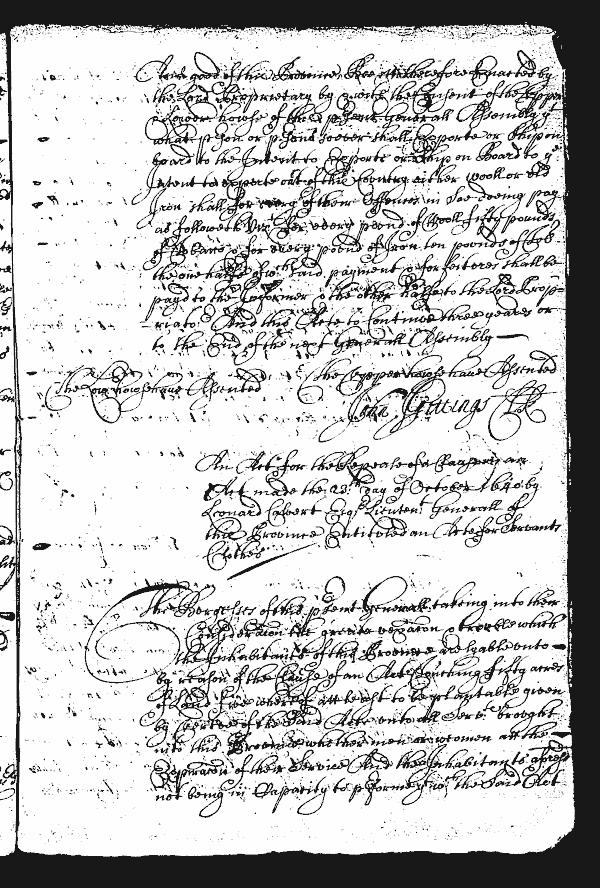 And good of this Province. Bee itt therefore Enacted by
the Lord Proprietary by & with the Consent of the Upper
& Lower howse of this pñt Generall Assembly yt
what pson or psons soever shall Exporte or Shipp on
board to the Intent to Exporte or Shipp on Board to ye
Intent to exporte out of this Country either wooll or old
Iron shall for every of their Offences in Soe doeing pay
as followeth Vizt for every pound of Wooll fifty pounds
of Tobacco & for every pound of Iron ten pounds of Tob
the one halfe of wch said payment & forfeitures shall be
payd to the Informer & the other halfe to the Lord Prop-
-rietory And this Acte to Continue three yeares or
to the End of the next Generall Assembly
The Lower howse have Assented The Upper howse have Assented
John Gittings Clk
An Act for the Repeale of a Clause in an
Act made the 23th day of October 1640 by
Leonard Calvert Esqr Lieutent Generall of
this Province Entituled an Acte for Servants
Clothes
The Burgesses of this pñt Generall takeing into their
Consideraçon the greate vexaçon & trouble which
the Inhabitants of this Province are lyable unto
by reason of the Clause of an Acte touching fifty acres
of Land five whereof att least to be plantable given
by vertue of the Said Acte unto all Servts brought
into this Province whether men or women att the
Expiraçon of their Service And the Inhabitants aforesd
not being in Capacity to pforme the Said Act